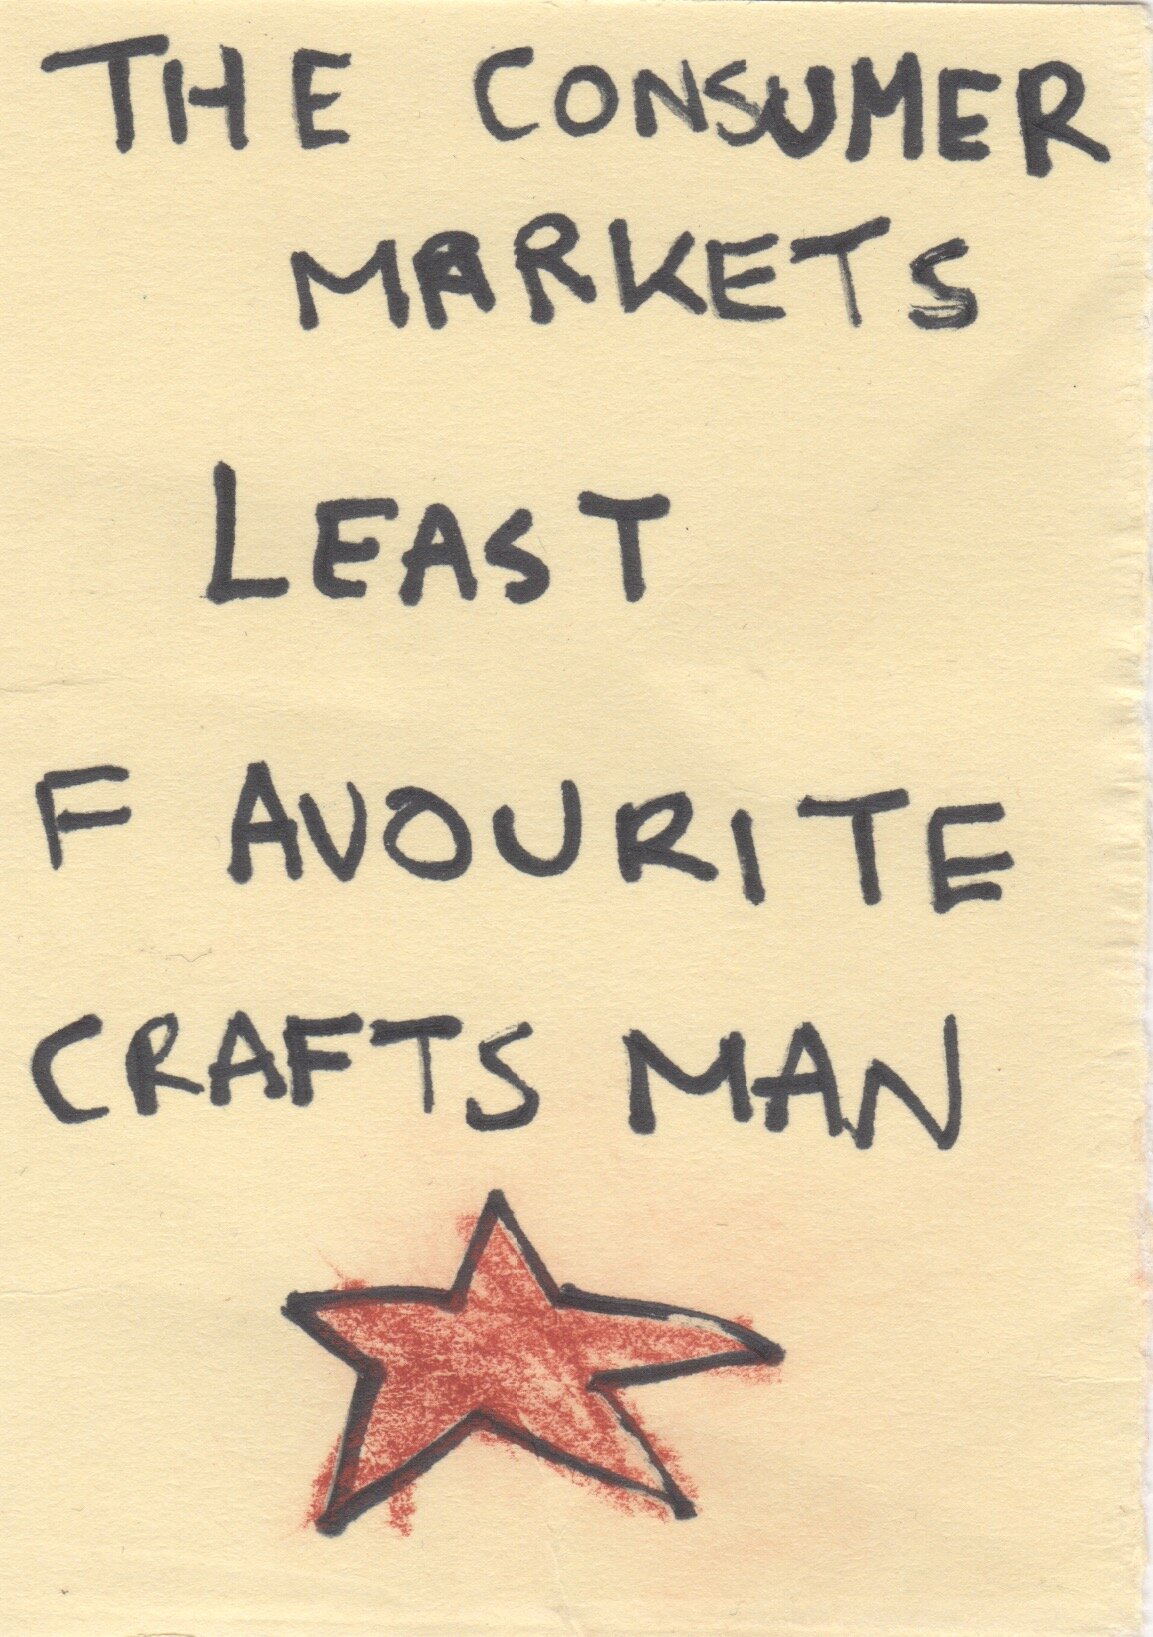 THE CONSUMER
MARKETS
LEAST
F AVOURITE
CRAFTS MAN